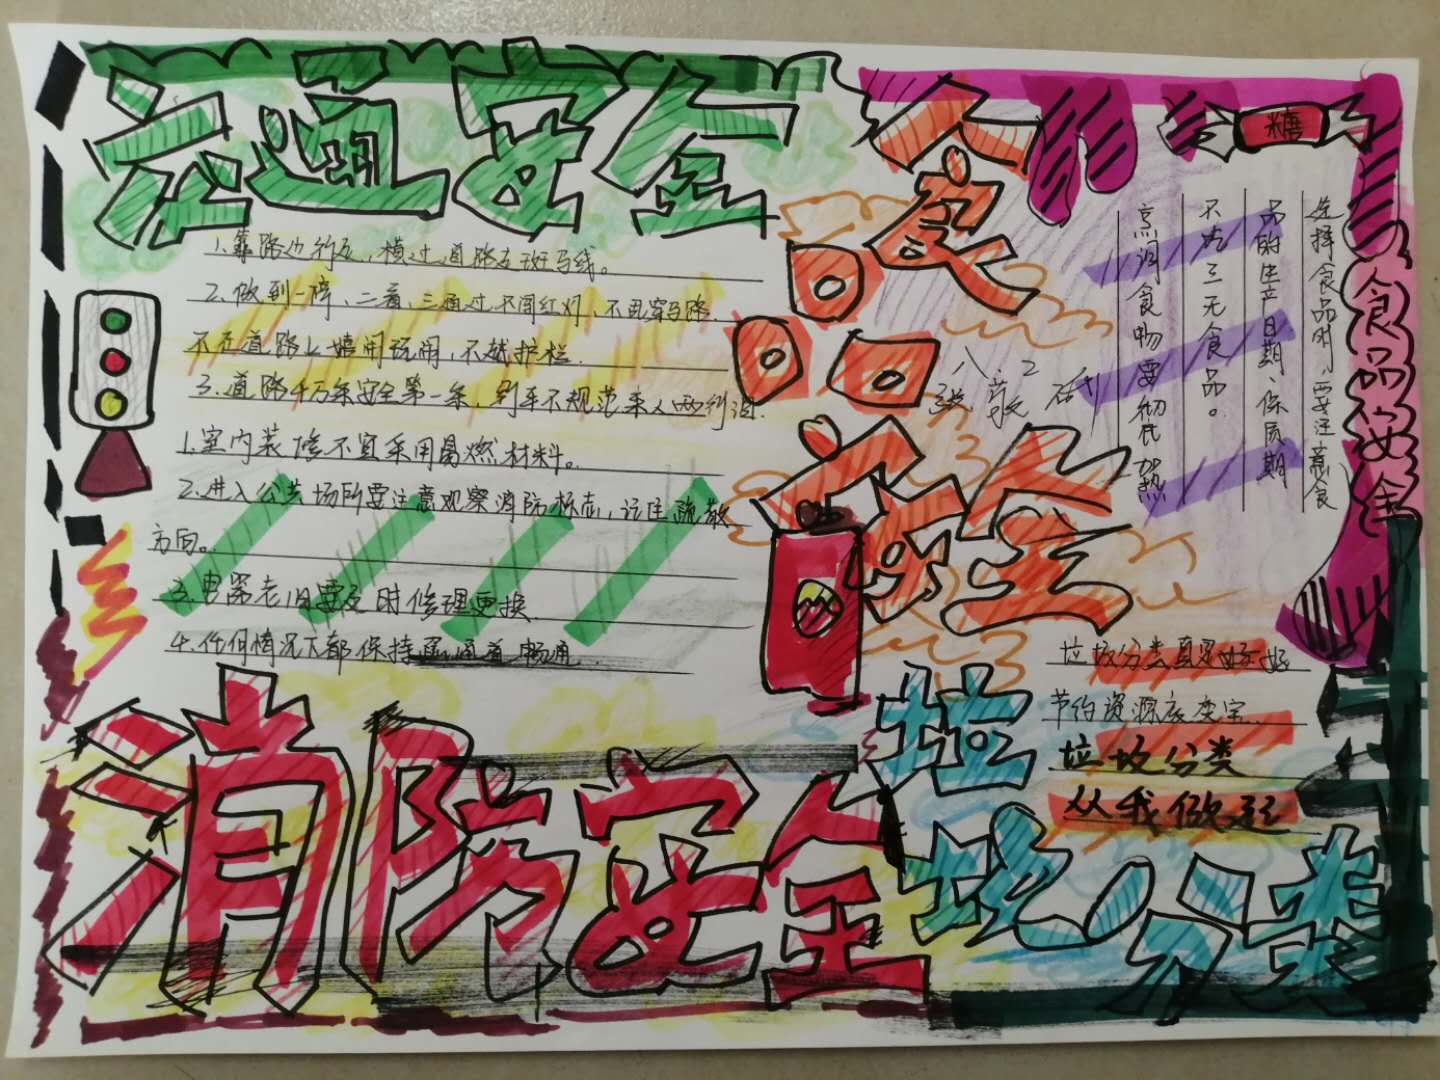 交通安全
1.靠路边行走,横过道路走斑马线。
2.做到一停、二看、三通过,不闯红灯,不乱穿马路.
不在道路上嬉闹玩闹,不越护栏.
3.道路千万条安全第一条,行车不规范亲人两行泪.
1.室内装修不宜采用易燃材料。
2.进入公共场所要注意观察消防标志,记住疏散
方向。
3.电器老旧要及时修理更换
4.任何情况下都保持 通道畅通.
消防安全
食
品
安全
糖
选择食品时,要注意食
品的生产日期、保质期
不吃三无食品。
烹调食物要彻底加热
八.2
张
食品安全
垃圾分类真是好
节约资源 变宝
垃圾分类
从我做起
垃圾分类